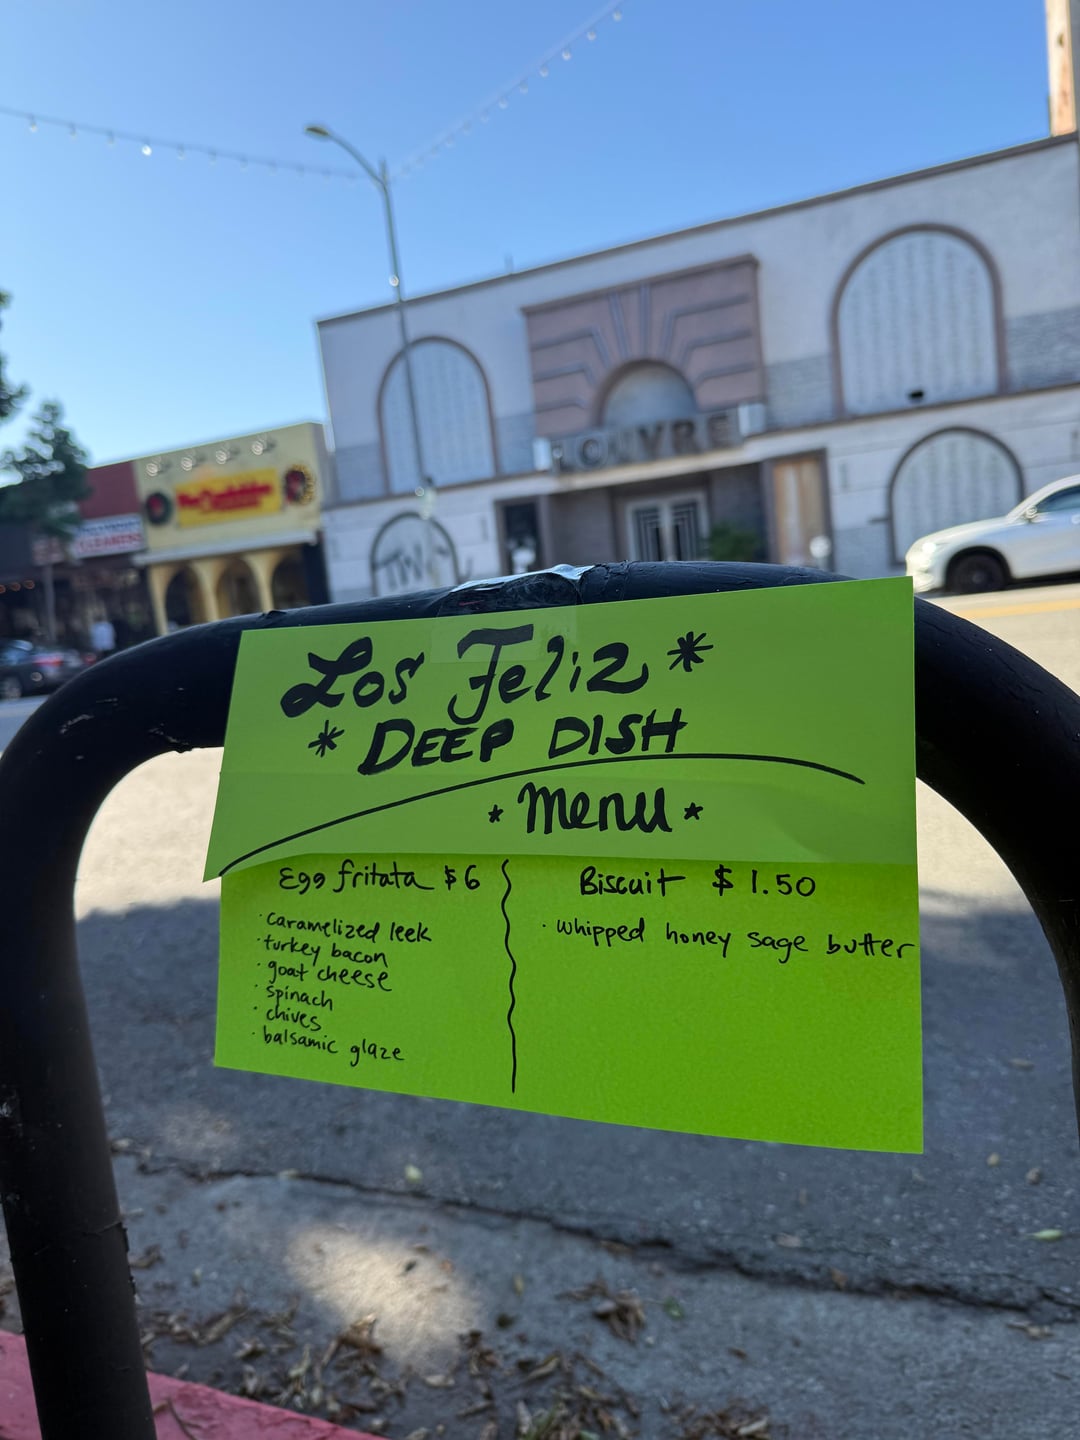 LOUVRE
CLEANERS
Los Feliz *
* DEEP DISH
* Menu *
Egg fritata $6
· caramelized leek
· turkey bacon
· goat cheese
· spinach
· chives
· balsamic glaze
Biscuit $1.50
· whipped honey sage butter